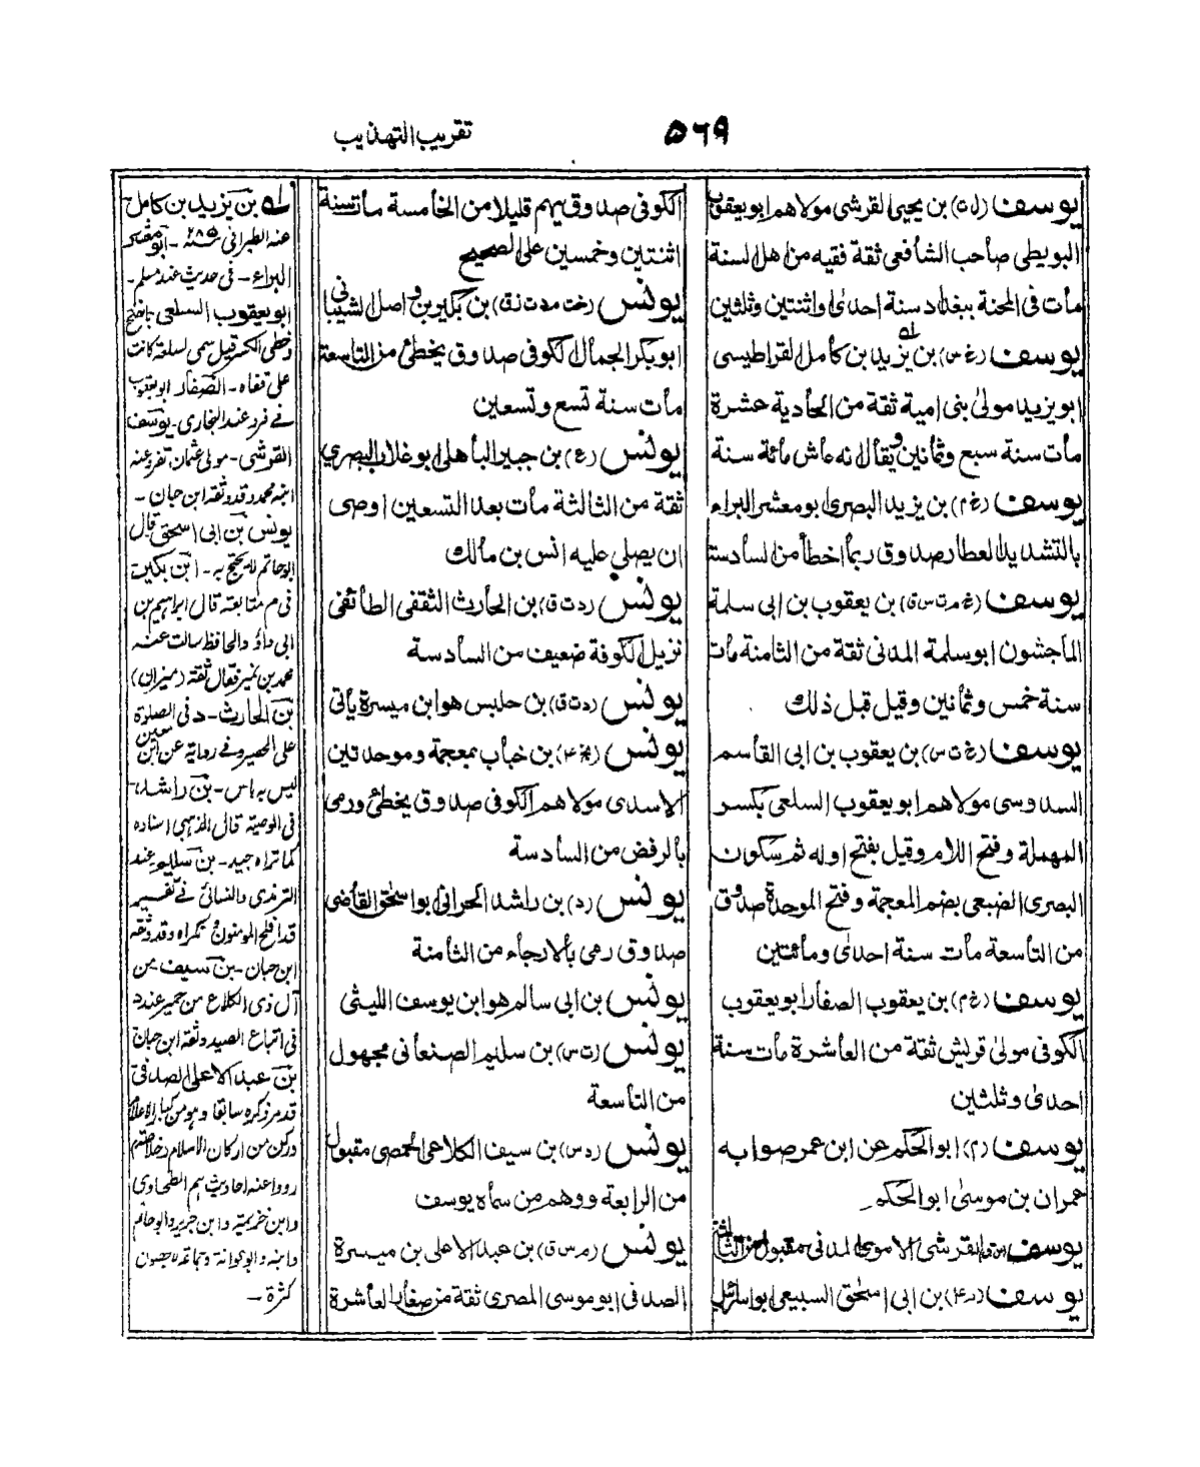 ۵۶۹
تقريب التهذيب
يوسف (ل ت) بن يحيى القرشي مولاهم ابو يعقوب
البويطي صاحب الشافعي ثقة فقيه من اهل السنة
مات في المحنة ببغداد سنة احدى او اثنتين وثلثين
يوسف (غ س) بن يزيد بن كامل القراطيسي
ابو يزيد مولى بني امية ثقة من الحادية عشرة
مات سنة سبع وثمانين ويقال انه عاش مائة سنة
يوسف (خ م) بن يزيد البصري ابو معشر البراء
بالتشديد العطار صدوق ربما اخطأ من السادسة
يوسف (خ م ت س ق) بن يعقوب بن ابي سلمة
الماجشون ابو سلمة المدني ثقة من الثامنة مات
سنة خمس وثمانين وقيل قبل ذلك
يوسف (خ ت س) بن يعقوب بن ابي القاسم
السدوسي مولاهم ابو يعقوب السلعي بكسر
المهملة وفتح اللام وقيل بفتح اوله ثم سكون
البصري الضبعي بضم المعجمة وفتح الموحدة صدوق
من التاسعة مات سنة احدى ومائتين
يوسف (خ م) بن يعقوب الصفار ابو يعقوب
الكوفي مولى قريش ثقة من العاشرة مات سنة
احدى وثلثين
يوسف (م) ابو الحكم عن ابن عمر صوابه
عمران بن موسى ابو الحكم
يوسف القرشي الاموي المدني مقبول من الثالثة
يوسف (ر ۴) بن ابي اسحق السبيعي ابو اسرائيل
الكوفي صدوق يهم قليلا من الخامسة مات سنة
اثنتين وخمسين على الصحيح
يونس (خت م د ت ق) بن بكير بن واصل الشيباني
ابو بكر الجمال الكوفي صدوق يخطئ من التاسعة
مات سنة تسع وتسعين
يونس (ع) بن جبير الباهلي ابو غلاب البصري
ثقة من الثالثة مات بعد التسعين اوصى
ان يصلي عليه انس بن مالك
يونس (د ت ق) بن الحارث الثقفي الطائفي
نزيل الكوفة ضعيف من السادسة
يونس (د ت ق) بن حلبس هو ابن ميسرة ياتي
يونس (بخ ۴) بن خباب بمعجمة وموحدتين
الاسدي مولاهم الكوفي صدوق يخطئ ورمي
بالرفض من السادسة
يونس (د) بن راشد الحراني ابو اسحق القاضي
صدوق رمي بالارجاء من الثامنة
يونس بن ابي سالم هو ابن يوسف الليثي
يونس (ت س) بن سليم الصنعاني مجهول
من التاسعة
يونس (د س) بن سيف الكلاعي الحمصي مقبول
من الرابعة ووهم من سماه يوسف
يونس (م س ق) بن عبد الاعلى بن ميسرة
الصدفي ابو موسى المصري ثقة من صغار العاشرة
له بن يزيد بن كامل
عنه الطبراني ۲۸۵ - ابو معشر
البراء - في حديث عند مسلم -
ابو يعقوب السلعي بالفتح
وخطى الكسر قيل سمي لسلعة كانت
على قفاه - الصفار ابو يعقوب
في فرد عند البخاري - يوسف
القرشي - مولى عثمان تفرد عنه
ابنه محمد وقد وثقه ابن حبان -
يونس بن ابي اسحق قال
ابو حاتم لا يحتج به - ابن بكير
في م متابعة قال ابراهيم بن
ابي داؤد والحافظ سالت عنه
محمد بن نمير فقال ثقة (ميزان)
بن الحارث - د في الصلوة
على الحصير وفي رواية عن ابن معين
ليس به باس - بن راشد،
في الوصية قال الذهبي اسناده
كما تراه جيد - بن سليم عند
الترمذي والنسائي في تفسير
قد افلح المومنون وقد وثقه
ابن حبان - بن سيف من
آل ذي الكلاع من حمير عند د
في اتباع الصيد وثقه ابن حبان
بن عبد الاعلى الصدفي
قد مر ذكره سابقا وهو من كبار الاعلام
وركن من اركان الاسلام
رووا عنه احاديث الطحاوي
وابن خزيمة وابن جرير وابو حاتم
وابنه وابو عوانة وجماعة لا يحصون
كثرة -